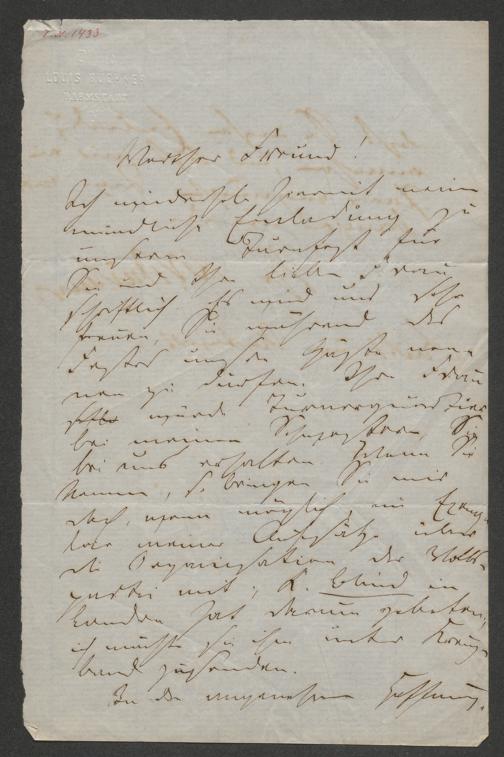 LOUIS BUECHNER
DARMSTADT
Werther Freund!
Ich wiederhole hiermit meine
mündliche Einladung zu
unserem Turnfest für
Sie und Ihre liebe Frau
schriftlich. Es wird uns sehr
freuen, Sie während des
Festes unsre Gäste nen-
nen zu dürfen. Ihre Frau
würde Turnerquartier
bei meinen Schwestern, Sie
bei uns erhalten. Wenn Sie
kommen, so bringen Sie mir
doch, wenn möglich, ein Exemp-
lar meiner Aufsätze über
die Organisation der Volks-
partei mit; K. Blind in
London hat darum gebeten;
ich möchte sie ihm unter Kreuz-
band zusenden.
In der angenehmen Hoffnung,